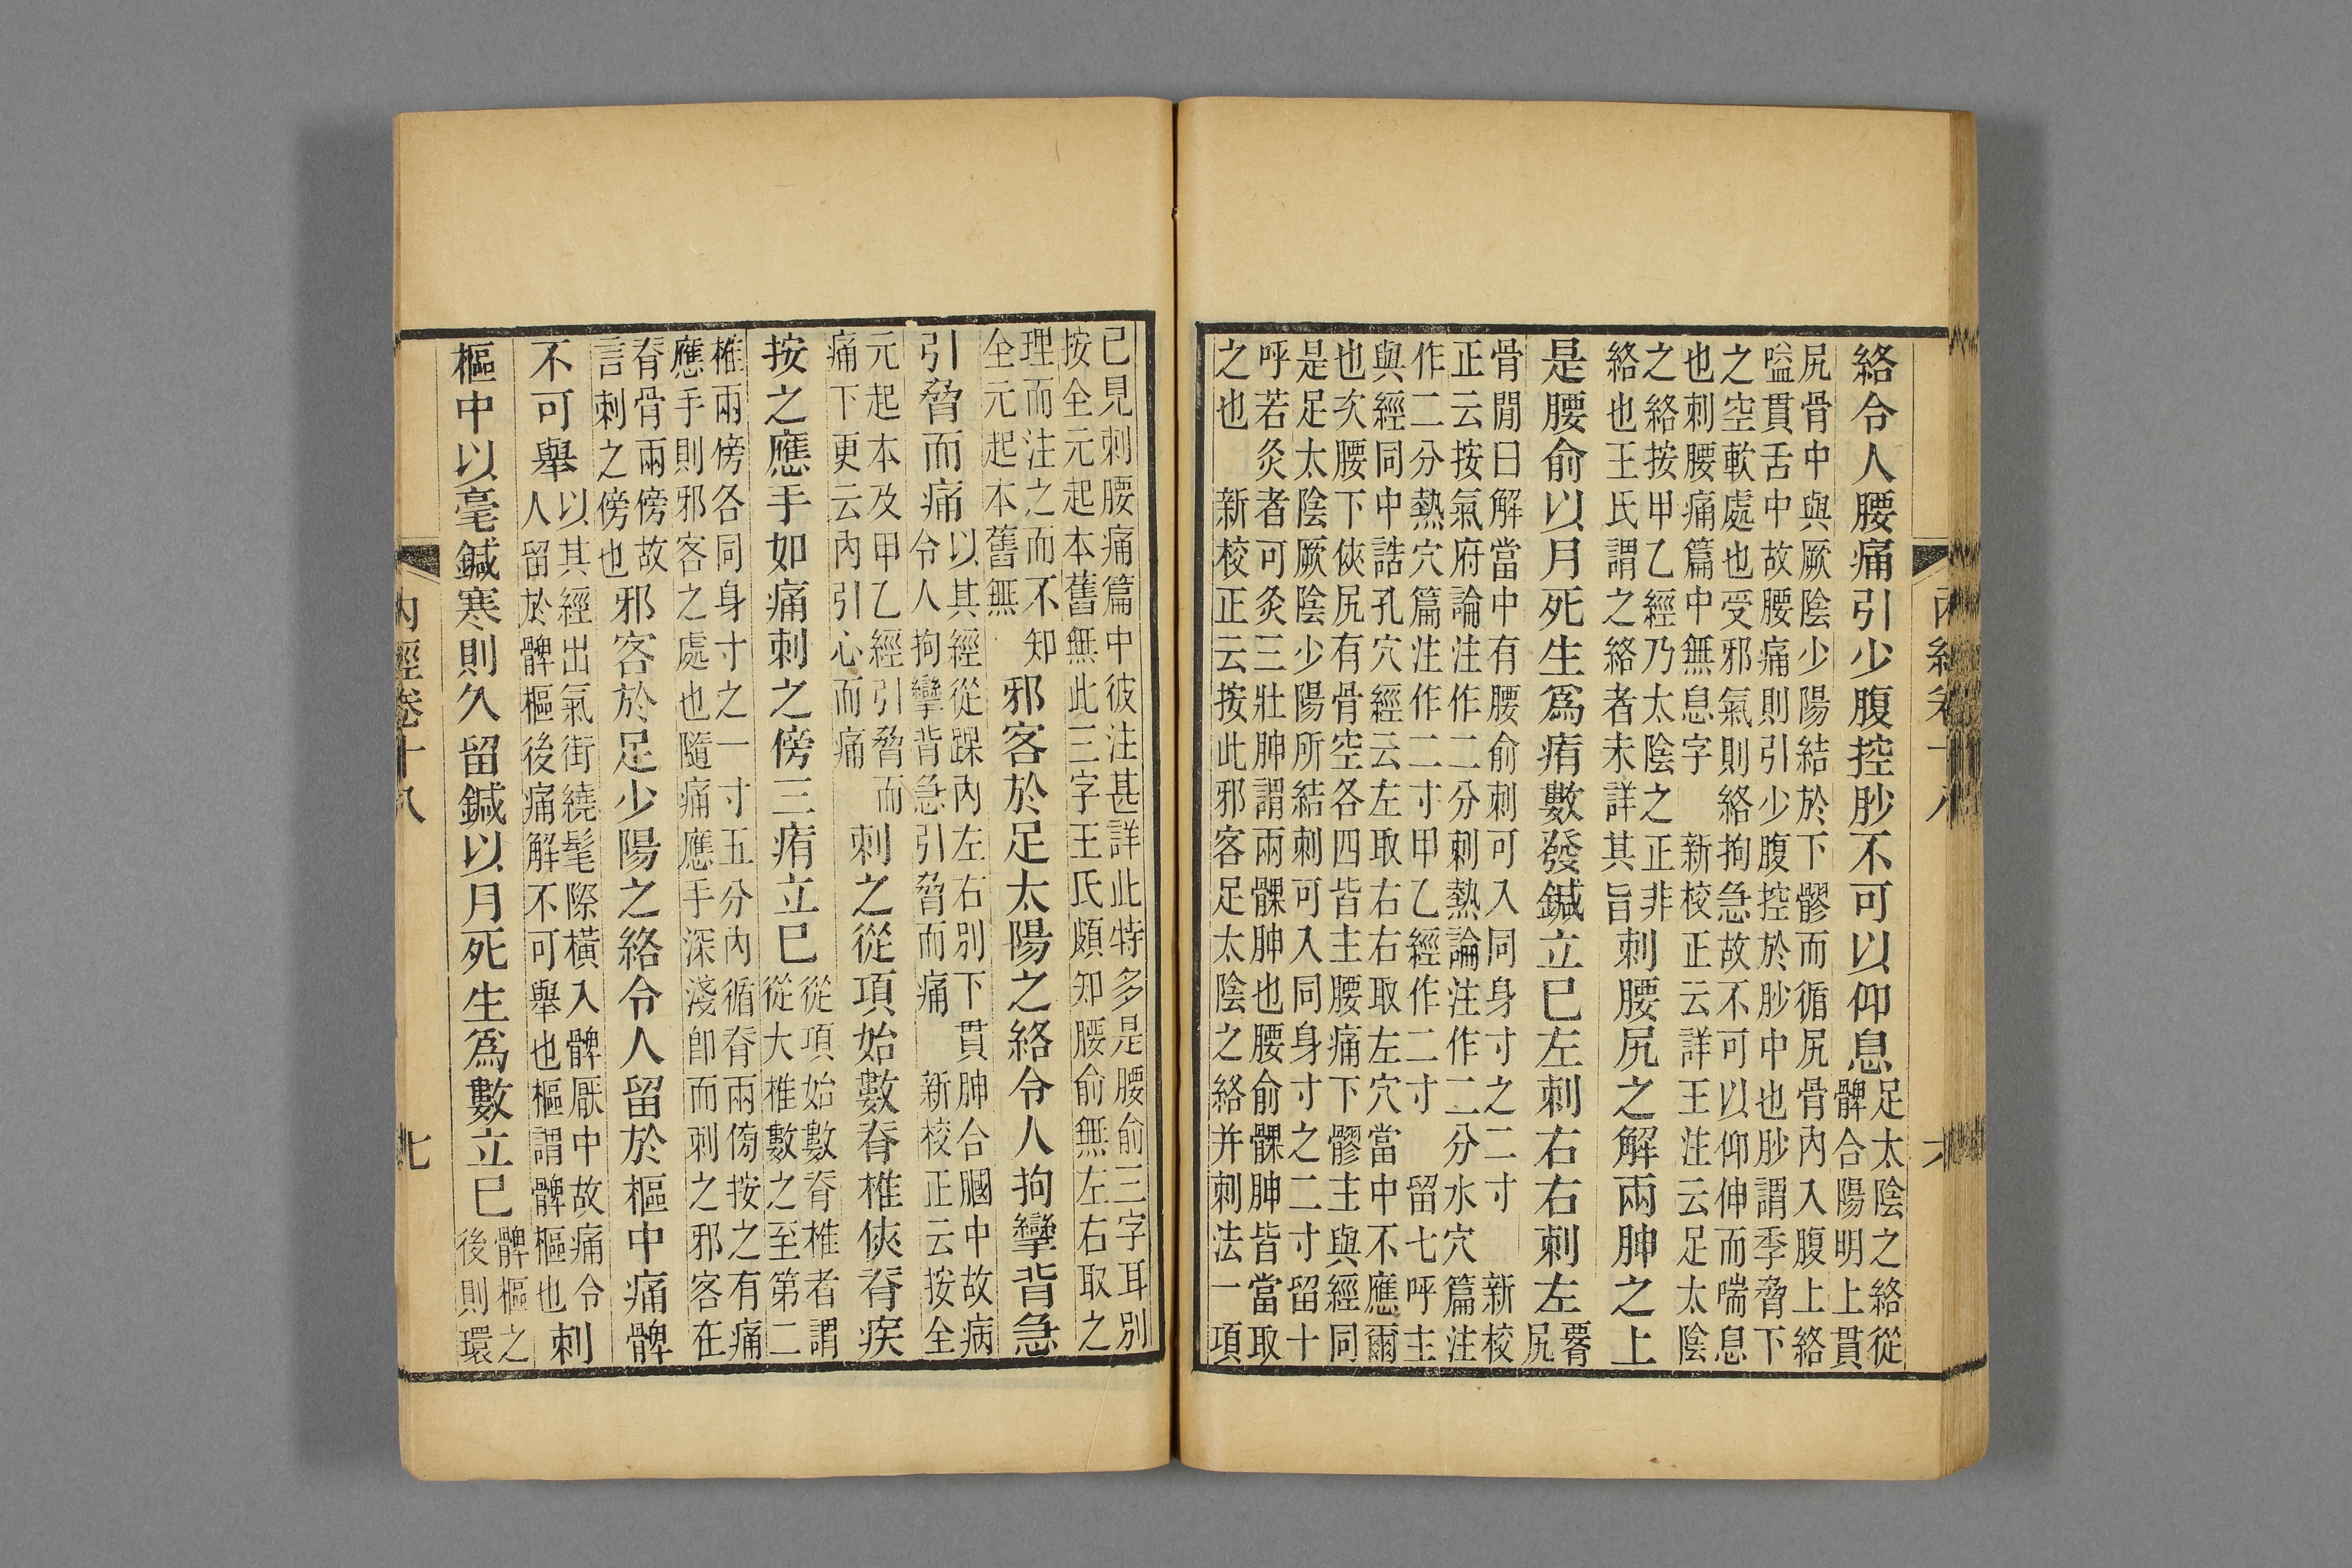 絡令人腰痛引少腹控䏚不可以仰息足太陰之絡從
髀合陽明上貫
尻骨中與厥陰少陽結於下髎而循尻骨內入腹上絡
嗌貫舌中故腰痛則引少腹控於䏚中也䏚謂季脅下
之空軟處也受邪氣則絡拘急故不可以仰伸而喘息
也刺腰痛篇中無息字 新校正云詳王注云足太陰
之絡按甲乙經乃太陰之正非
絡也王氏謂之絡者未詳其旨刺腰尻之解兩胂之上
是腰俞以月死生爲痏數發鍼立已左刺右右刺左腰
尻
骨閒曰解當中有腰俞刺可入同身寸之二寸 新校
正云按氣府論注作二分刺熱論注作二分水穴篇注
作二分熱穴篇注作二寸甲乙經作二寸 留七呼主
與經同中誥孔穴經云左取右右取左穴當中不應爾
也次腰下俠尻有骨空各四皆主腰痛下髎主與經同
是足太陰厥陰少陽所結刺可入同身寸之二寸留十
呼若灸者可灸三壯胂謂兩髁胂也腰俞髁胂皆當取
之也 新校正云按此邪客足太陰之絡并刺法一項
內經卷十八 六
已見刺腰痛篇中彼注甚詳此特多是腰俞三字耳別
按全元起本舊無此三字王氏頗知腰俞無左右取之
理而注之而不知
全元起本舊無邪客於足太陽之絡令人拘攣背急
引脅而痛以其經從踝內左右別下貫胂合膕中故病
令人拘攣背急引脅而痛 新校正云按全
元起本及甲乙經引脅而
痛下更云內引心而痛刺之從項始數脊椎俠脊疾
按之應手如痛刺之傍三痏立已從項始數脊椎者謂
從大椎數之至第二
椎兩傍各同身寸之一寸五分內循脊兩傍按之有痛
應手則邪客之處也隨痛應手深淺卽而刺之邪客在
脊骨兩傍故
言刺之傍也邪客於足少陽之絡令人留於樞中痛髀
不可舉以其經出氣街繞髦際橫入髀厭中故痛令
人留於髀樞後痛解不可舉也樞謂髀樞也刺
樞中以毫鍼寒則久留鍼以月死生爲數立已髀樞之
後則環
內經卷十八 七